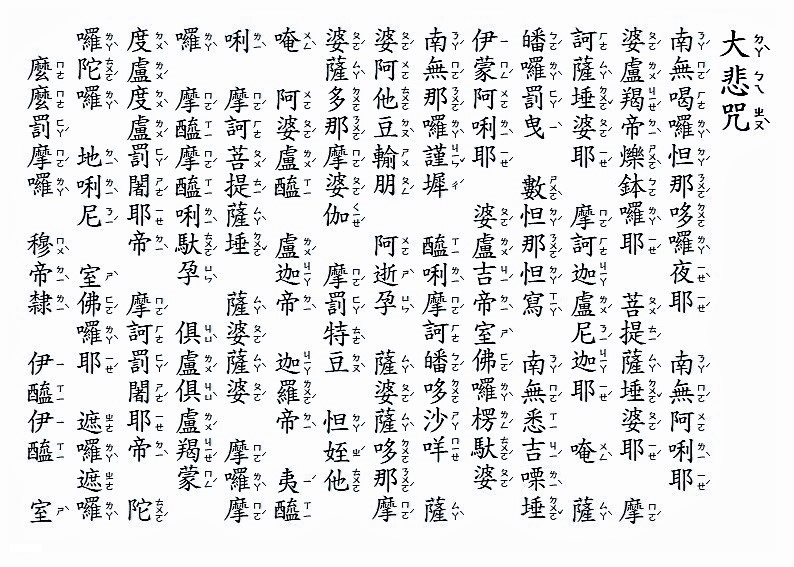 大悲咒
南無喝囉怛那哆囉夜耶 南無阿唎耶
婆盧羯帝爍鉢囉耶 菩提薩埵婆耶 摩
訶薩埵婆耶 摩訶迦盧尼迦耶 唵 薩
皤囉罰曳 數怛那怛寫 南無悉吉嘌埵
伊蒙阿唎耶 婆盧吉帝室佛囉楞馱婆
南無那囉謹墀 醯唎摩訶皤哆沙咩 薩
婆阿他豆輸朋 阿逝孕 薩婆薩哆那摩
婆薩多那摩婆伽 摩罰特豆 怛姪他
唵 阿婆盧醯 盧迦帝 迦羅帝 夷醯
唎 摩訶菩提薩埵 薩婆薩婆 摩囉摩
囉 摩醯摩醯唎馱孕 俱盧俱盧羯蒙
度盧度盧罰闍耶帝 摩訶罰闍耶帝 陀
囉陀囉 地唎尼 室佛囉耶 遮囉遮囉
麼麼罰摩囉 穆帝隸 伊醯伊醯 室